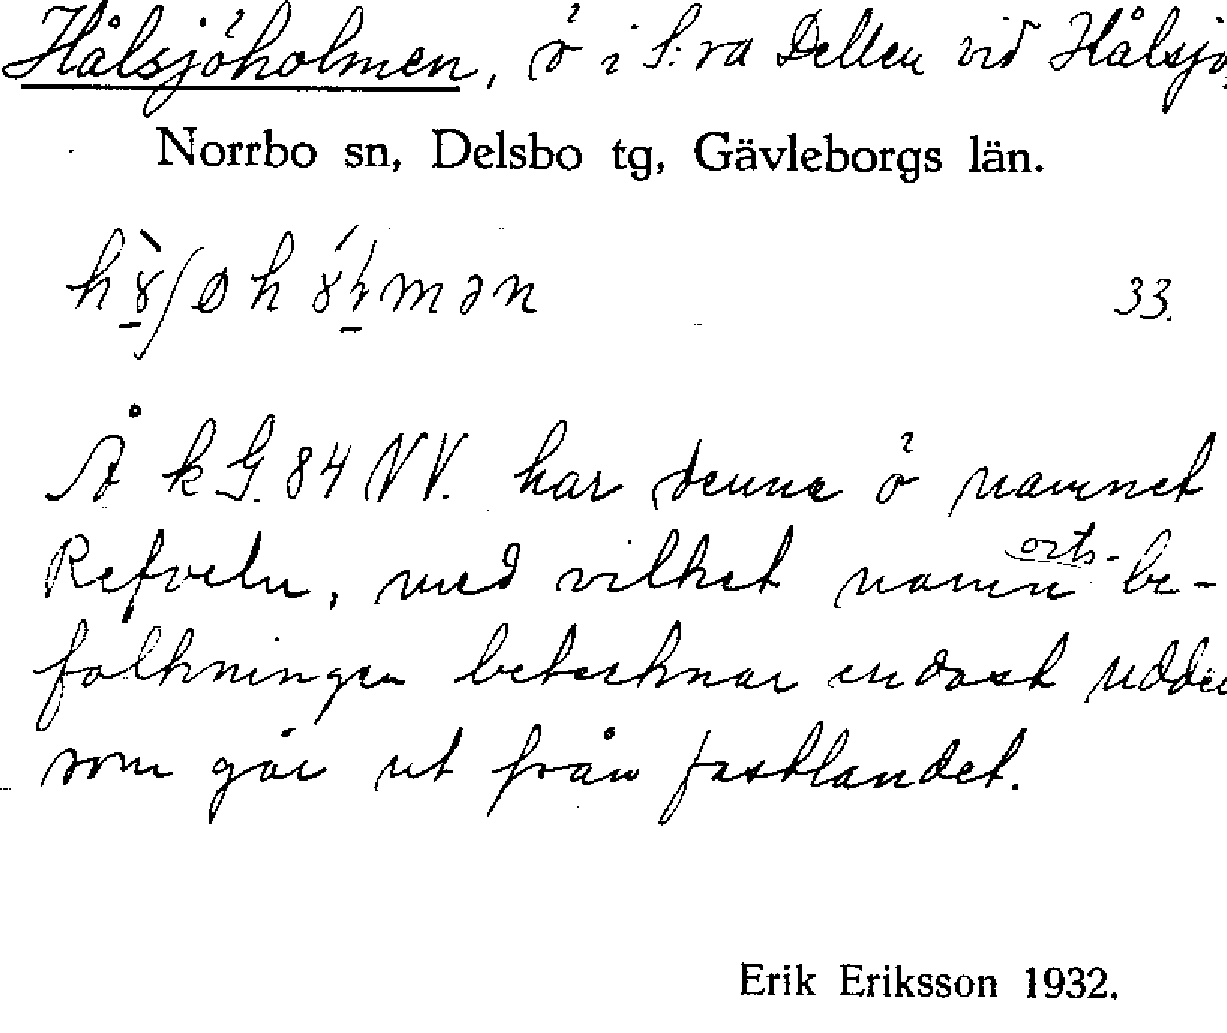 Hålsjöholmen, ö i S:ra Dellen vid Hålsjö,
Norrbo sn, Delsbo tg, Gävleborgs län.
33.
Å kG. 84 NV. har denna ö namnet
Refveln, med vilket namn orts-be-
folkningen betecknar endast udden
som går ut från fastlandet.
Erik Eriksson 1932.